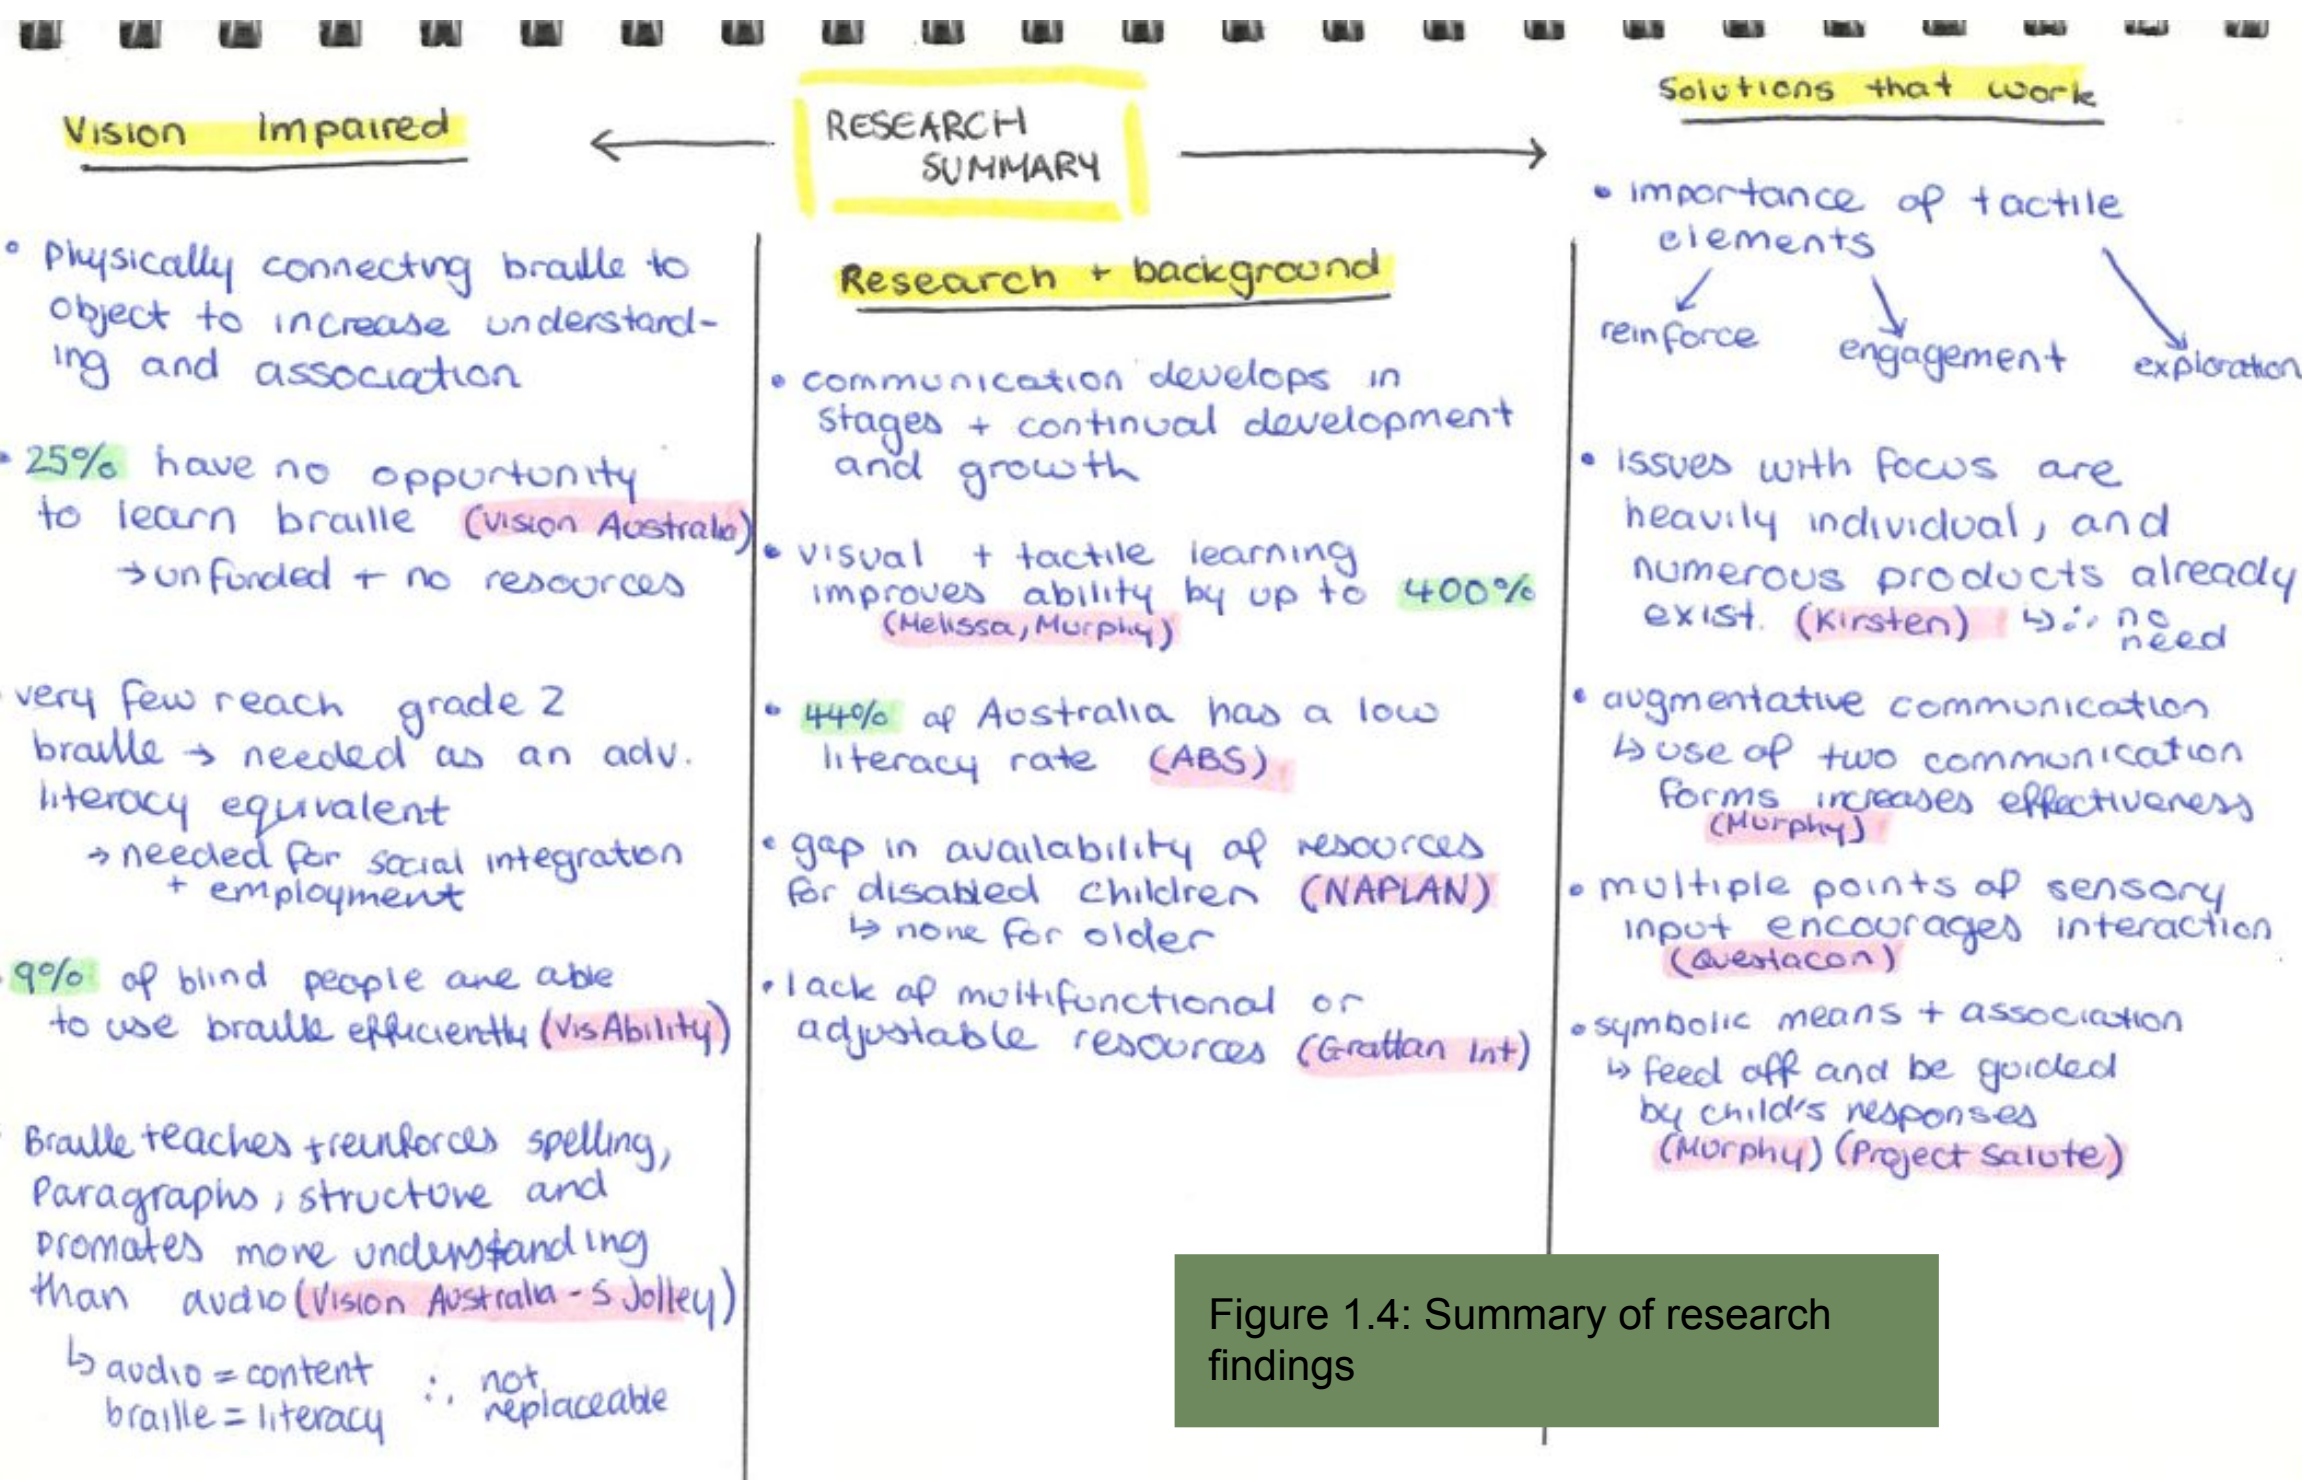 RESEARCH
SUMMARY
Vision Impaired
• Physically connecting braille to
object to increase understand-
ing and association
• 25% have no opportunity
to learn braille (Vision Australia)
→ unfunded + no resources
very few reach grade 2
braille → needed as an adv.
literacy equivalent
→ needed for social integration
+ employment
9% of blind people are able
to use braille efficiently (VisAbility)
Braille teaches + reinforces spelling,
Paragraphs, structure and
promotes more understanding
than audio (Vision Australia - S Jolley)
↳ audio = content
braille = literacy
∴ not
replaceable
Research + background
• communication develops in
stages + continual development
and growth
• visual + tactile learning
improves ability by up to 400%
(Melissa, Murphy)
• 44% of Australia has a low
literacy rate (ABS)
• gap in availability of resources
for disabled children (NAPLAN)
↳ none for older
• lack of multifunctional or
adjustable resources (Grattan Int)
Solutions that work
• importance of tactile
elements
reinforce engagement exploration
• issues with focus are
heavily individual, and
numerous products already
exist. (Kirsten) ↳ ∴ no
need
• augmentative communication
↳ use of two communication
forms increases effectiveness
(Murphy)
• multiple points of sensory
input encourages interaction
(Questacon)
• symbolic means + association
↳ feed off and be guided
by child's responses
(Murphy) (Project Salute)
Figure 1.4: Summary of research
findings